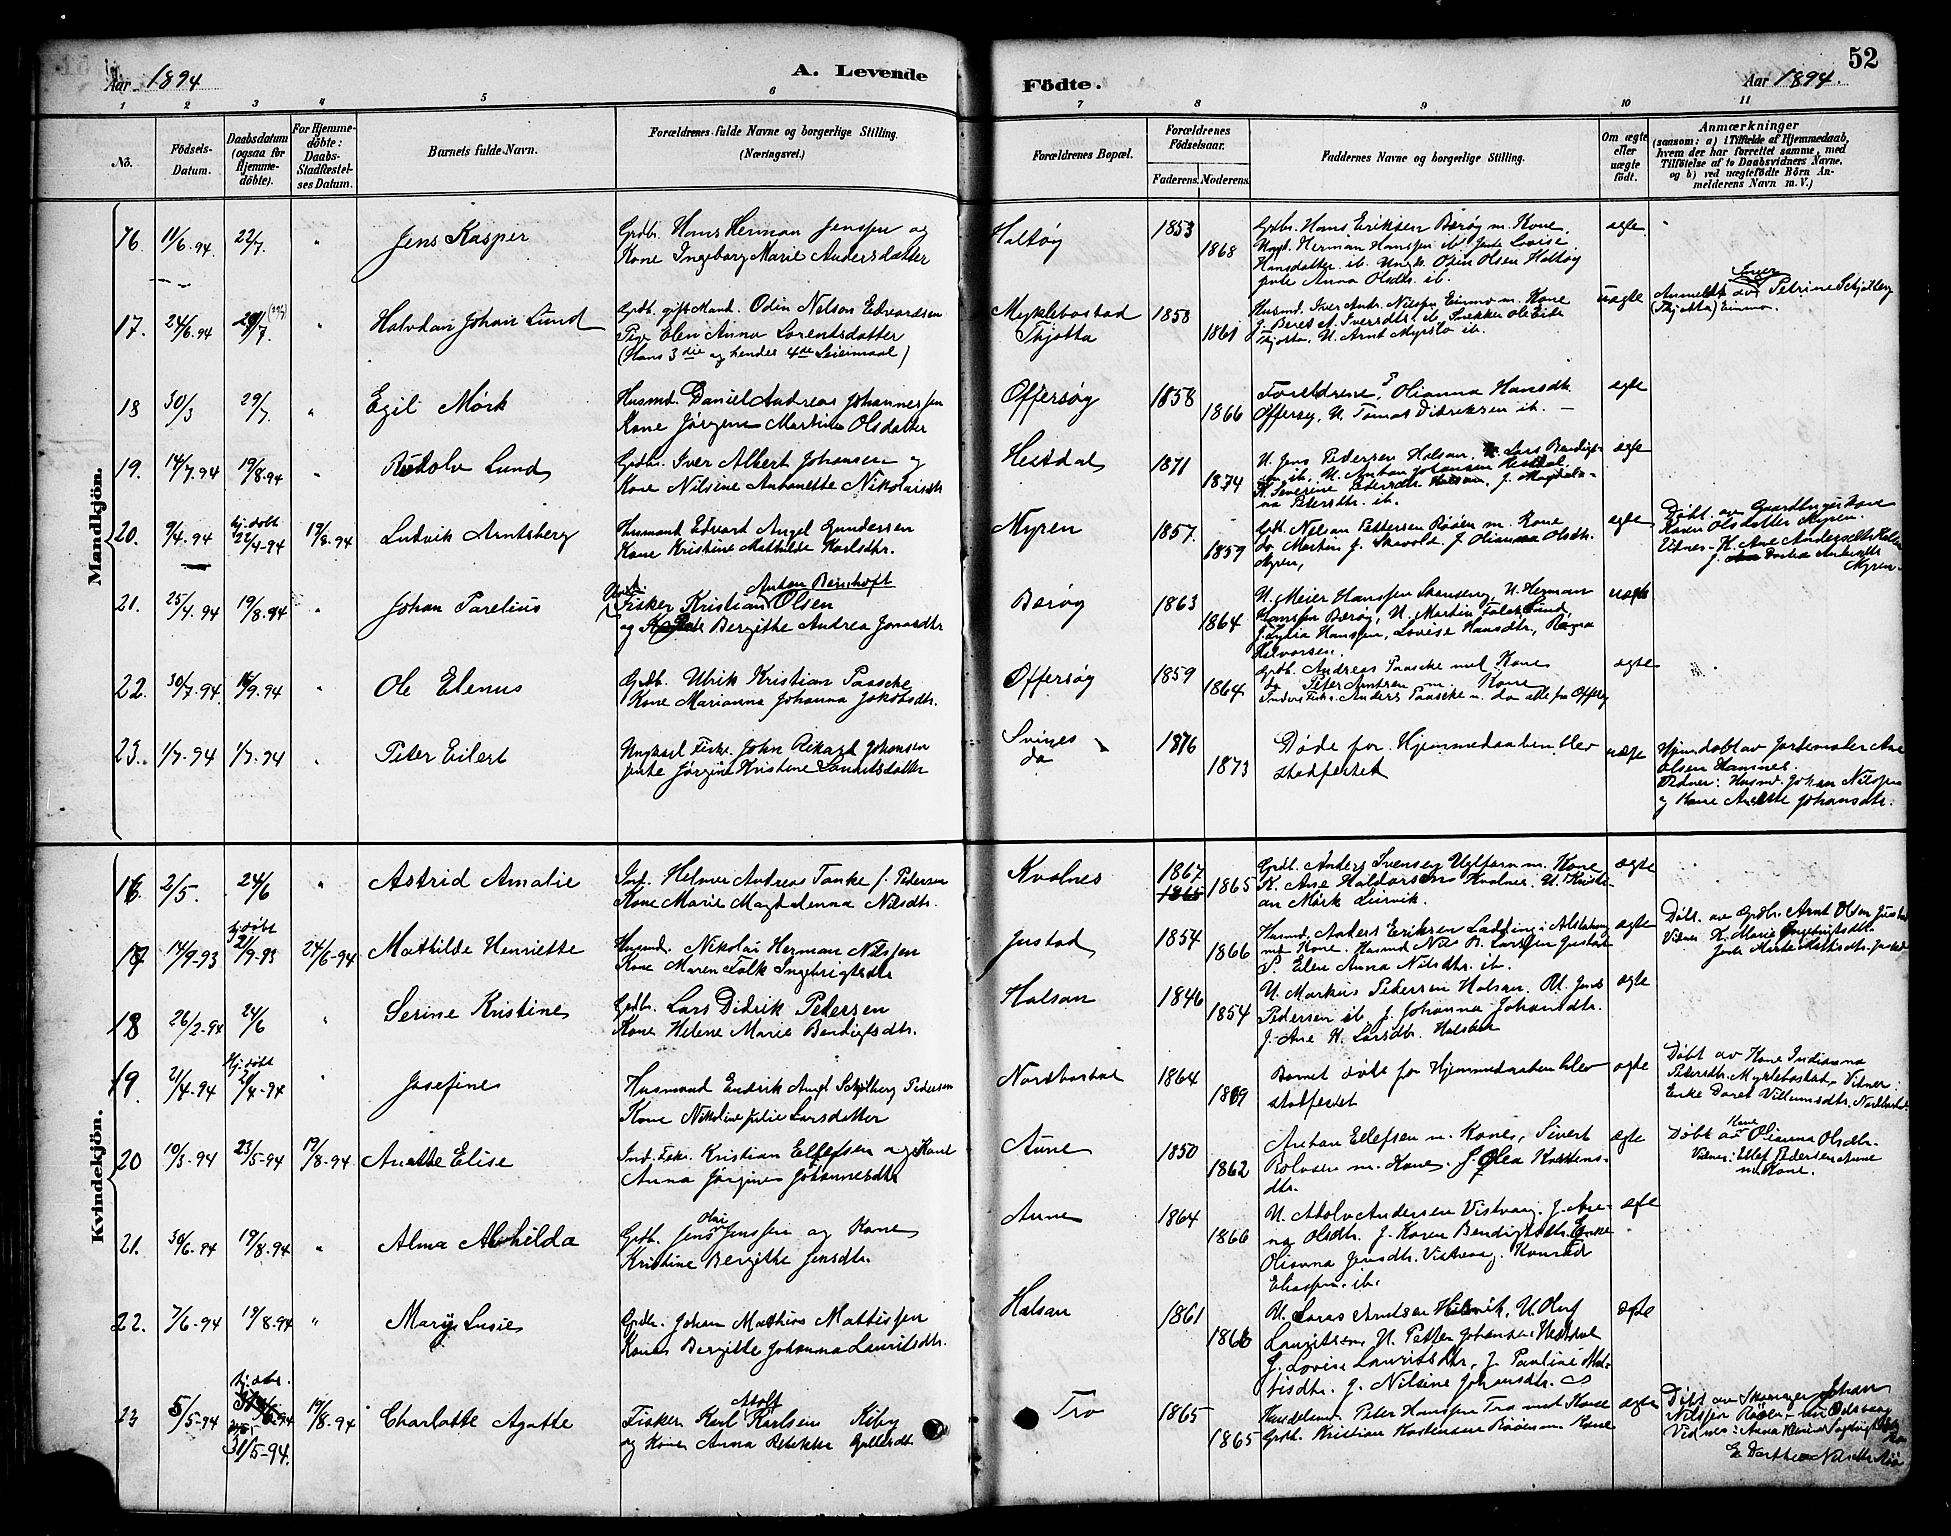 Aar 1894
A. Levende
Födte.
Aar 1894.
52
1 2 3 4 5 6 7 8 9 10 11
No.
Födsels-Datum.
Daabsdatum (ogsaa for Hjemme-döbte).
For Hjemme-döbte: Daabs-Stadfæstel-ses Datum.
Barnets fulde Navn.
Forældrenes fulde Navne og borgerlige Stilling. (Næringsvei.)
Forældrenes Bopæl.
Forældrenes Födselsaar.
Faderens. Moderens.
Faddernes Navne og borgerlige Stilling.
Om ægte eller uægte födt.
Anmærkninger
(saasom: a) i Tilfælde af Hjemmedaab, hvem der har forrettet samme, med Tilföielse af to Daabsvidners Navne, og b) ved uægtefödte Börn Anmelderens Navn m. V.)
Mandkjön.
16 11/6.94 22/7. " Jens Kasper
Grdbr. Hans Herman Jenssen og
Kone Ingeborg Marie Andersdatter
Haltøy 1853 1868
Grdbr. Hans Eriksen Bærøy m. Kone,
Herman Hanssen ib. Pike Lovise
Hansdatter ib. Ungk. Odin Olsen Haltøy
pike Anna Olsdtr. ib.
ægte
17. 24/6.94 29/7. " Halvdan Johan Lund
Grdb. gift Mand. Odin Nelson Edvardsen
Pige Elen Anna Lorentsdatter
(Hans 3die og hendes 4de Leiermaal)
Myklebostad
Thjøtta 1858 1861
Husmd. Iver Andr. Nilssen Einmo m. Kone
Thjøtta, U. Arnt Myrslo ib.
uægte
Anmeldt av Petrine Schjelberg
(Thjøtta) Einmo.
18 30/3 29/7 " Egil Mörk
Husmd. Daniel Andreas Johannessen
Kone Jörgine Martine Olsdatter
Offersøy 1858 1866
Foreldrene, P. Olianna Hansdtr.
Offersøy, U. Tomas Didriksen ib. —
ægte
19. 14/7.94 19/8.94 " Rudolv Lund
Grdbr. Iver Albert Johansen og
Kone Nilsine Antonette Nikolaisdtr
Hestdal 1871 1874
U. Jens Pedersen Halsan, Lars Bendigt-
sen ib, U. Anton Johansen Hestdal,
K. Severine Pedersdtr. Halsan, J. Magdale-
na Petersdtr. ib.
ægte
20. 9/4.94 hj.døbt 22/4-94 19/8.94 Ludvik Arntsberg
Husmand Edvard Angel Gundersen
Kone Kristine Mathilde Karlsdtr.
Myren 1857. 1859
Grdb. Nelson Pettersen Røøen m. Kone
do Morten J. Skavold. J. Olianna Olsdtr.
Myren,
ægte
Døbt. av Gaardbrugerkone
Karen Olsdatter Myren.
Vidner- K. Ane Andersdtr.
Myren-
21. 25/4.94 19/8.94 " Johan Parelius
Anton Bernhoft
Fisker Kristian Olsen
og Bergitte Andrea Jonasdtr
Bærøy 1863 1864
U. Meier Hanssen U. Herman
Hanssen Bærøy, U. Martin Falck Lund,
J. Lydia Hanssen, Lovise Hansdtr, Ragna
Halvorsen.
uægte
22. 30/7.94 16/9.94 " Ole Elenus
Grdb. Ulrik Kristian Paascke
Kone Marianna Johanna Jakobsdtr.
Offersøy 1859 1864
Grdb. Andreas Paascke med Kone
do Peter Arntsen m. Kone
Anders Paascke m. do alle fra Offersøy
ægte
23. 1/7-94 1/7-94 " Peter Eilert
Ungkarl Fisker John Rikard Johansen
pike Jörgine Kristine Lauritsdatter
Svines
do 1876 1873
Døde før Hjemmedaaben blev
stadfestet
uægte
Hjemdøbt av Jordemoder Ane
Olsen Hamnes.
Vidner: Husmd. Johan Nilssen
og Kone Anette Johansdtr.
Kvindekjön.
16. 2/5. 24/6 " Astrid Amalie
Ind. Helmer Andreas Tanke f. Pedersen
Kone Marie Magdalenna Nilsdtr.
Kvalnes 1867 1865 1865
Grdb. Anders Svensen m. Kone
K. Ane Haldorsen Kvalnes. U. Kristi-
an Mörk Leirvik.
ægte
17 14/9-93 hj.døbt 21/9-93 24/6-94 Mathilde Henriette
Husmd. Nikolai Herman Nilssen
Kone Maren Falk Ingebrigtsdtr
Justad 1854 1866
Husmd. Anders Eriksen Ladding i Alstahaug
med Kone. Husmd Nils B. Larssen Justad
P. Elen Anna Nilsdtr. ib.
ægte
Døbt. av Grdbr. Arnt Olsen Justad
Vidner K. Marie Ingebrigtsdtr.
18 26/2-94 24/6 " Serine Kristine
Grdbr. Lars Didrik Pedersen
Kone Helene Marie Bendigtsdtr.
Halsan 1846 1854
U. Markus Pedersen Halsan. U. Jens
Pedersen ib. J. Johanna Johansdtr.
J. Ane H. Larsdtr. Halsbak
ægte
19. 2/4-94 Hj.døbt 21/4-94 " Josefine
Husmand Endrik Angel Schjelberg Pedersen
Kone Nikoline Julie Larsdatter
Nordbostad 1864 1869
Barnet døde før Hjemmedaaben blev
stadfestet
ægte
Døbt av Kone Indianna
Pedersdtr. Myklebostad, Vidner:
Enke Doret Villumsdtr. Nordbostad
20 10/3-94 23/5-94 19/8-94 Anette Elise
Ind. Fisk. Kristian Ellefsen og Kone
Anna Jørgine Johannesdtr
Aune 1850 1862
Anton Ellefsen m. Kone, Sivert
Rolvsen m. Kone. J. Olea Karstens-
dtr.
ægte
Døbt av Kone Olianna Olsdtr-
Vidner: Ellef Pedersen Aune
m. Kone.
21. 30/6-94 19/8.94 " Alma Alvhilda
Grdb. Jens Olai Jenssen og Kone
Kristine Bergitte Jensdtr.
Aune 1864 1866
U. Adolv Andersen Vistvaag. J. Are-
na Olsdtr. J. Karen Bendigtsdtr. Enke
Olianna Jensdtr. Vistvaag. Konrad
Eliassen. ib.
ægte
22. 7/6-94 19/8.94 " Mary Lusie
Grdbr. Johan Mathias Mattissen
Kone Bergitte Johanna Lauritsdtr.
Halsan 1861 1866
U. Laras Arntsen U. Oluf
Lauritsen, U. Petter Johansen Hestdal
J. Lovise Lauritsdtr., J. Pauline Mat-
tisdtr. J. Nilsine Johansdtr.
ægte
23 5/5-94 hj.døbt. 31/5-94. 19/8-94 Charlotte Agatte
Fisker Karl Adolf Karlsen Kiberg
og Kone Anna Rebekka
Tro 1865 1865
Peter Hanssen Tro med Kone
Grdb. Kristian Karstensen Røøen m. Kone
ægte
Døbt av Johan
Nilssen Røøen
Vidner: Anna
E. Dorthea Nilsdtr. Røø